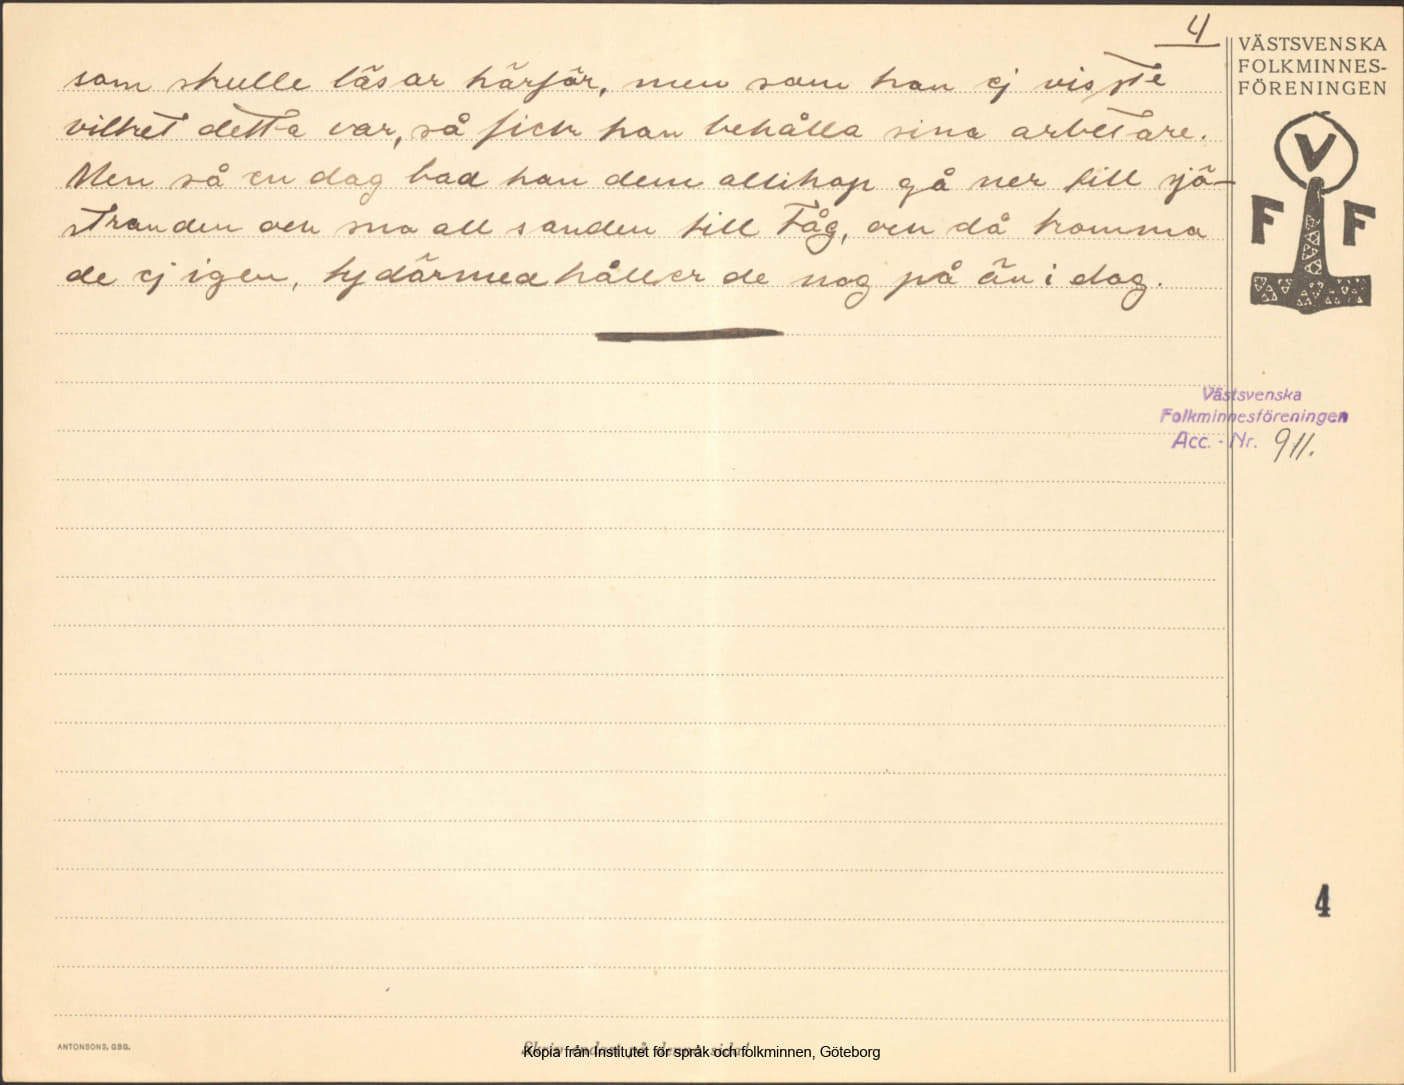 4
som skulle läsas härför, men som han ej visste
vilket detta var, så fick han behålla sina arbetare.
Men så en dag bad han dem allihop gå ner till sjö-
stranden och sno all sanden till tåg, och då komma
de ej igen, ty därmed håller de nog på än i dag.
VÄSTSVENSKA
FOLKMINNES-
FÖRENINGEN
V
F F
Västsvenska
Folkminnesföreningen
Acc. - Nr. 911.
4
ANTONSONS, GBG.
Skriv endast på denna sida!
Kopia från Institutet för språk och folkminnen, Göteborg